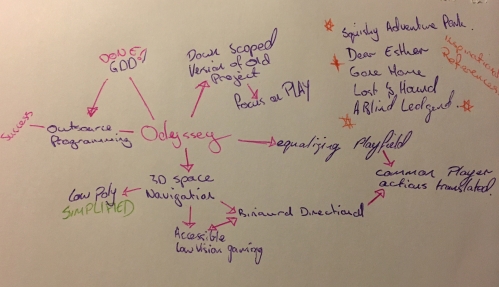 DONE
GDD?
Down Scoped
Version of Old
Project
Focus on PLAY
Squishy Adventure Park.
Dear Esther
Gone Home
Lost & Hound
A Blind Ledgend
Inspirational
References
Success
Outsource
Programming
Odyssey
equalizing Playfield
common Player
actions translated.
3D space
Navigation
Low Poly
SIMPLIFIED
Binaural Directional
Accessible
Low Vision gaming